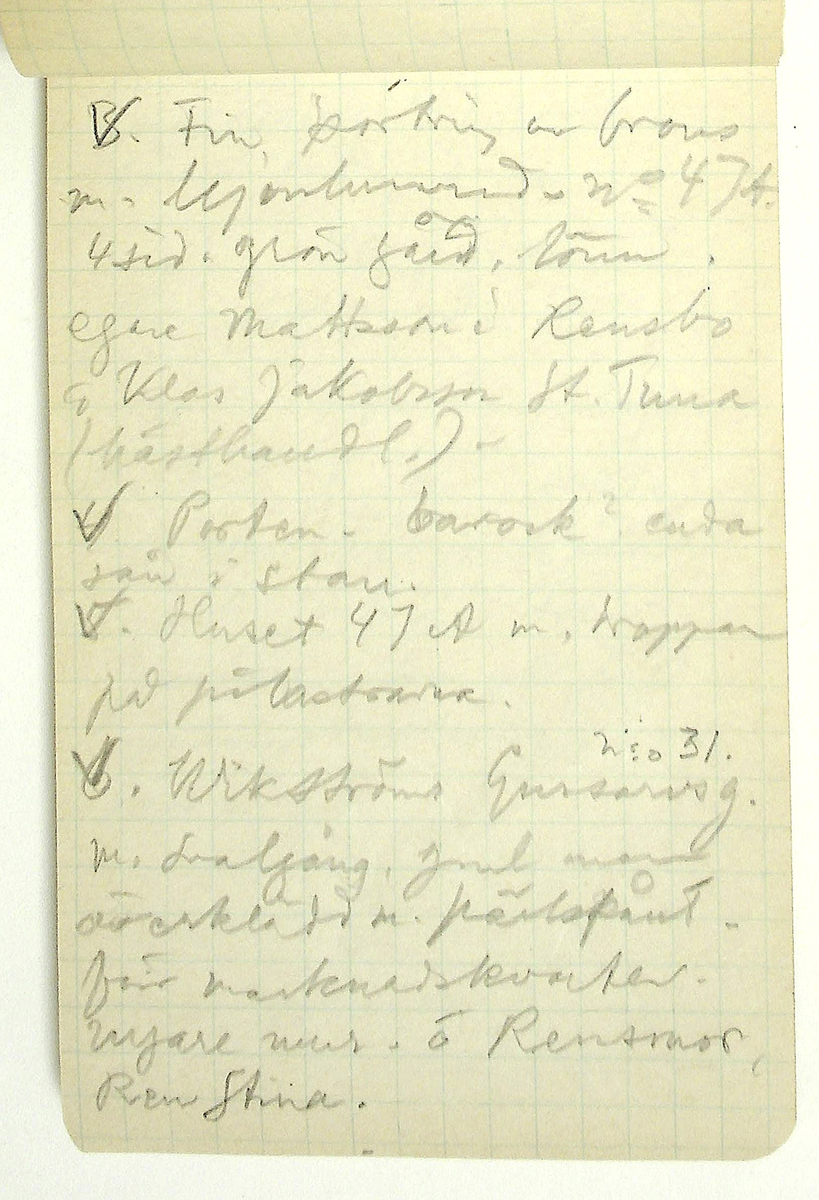 3. Fin, portring av brons
m. lejonhuvud. No 47A.
4 sid. grön gård, lönn.
egare Mattsson i Rensbo
o Klas Jakobsson St. Tuna
(hästhandl.).
4 Porten. barock? enda
sån i stan.
5. Huset 47 A m. trappan
på pilastrarna.
No 31.
6. Wikströms Gussarvsg.
m. svalgång, gml
överklädd m. pärlspånt.
för marknadskvarter.
nyare mur. o Rensmor,
Ren Stina.